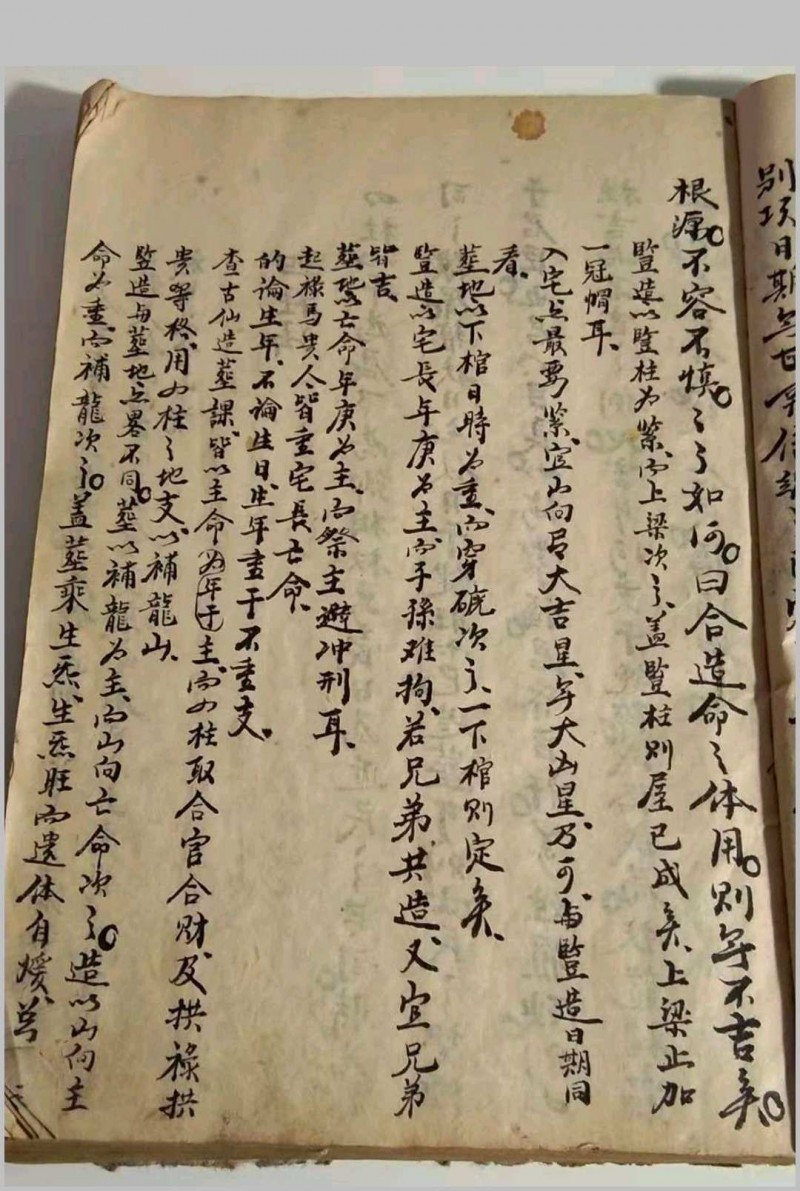 別項日期
根源。不容不慎。〻之如何。曰合造命之体用。则無不吉矣。
豎造以豎柱为紧、而上梁次之、盖豎柱则屋已成矣、上梁止加
一冠帽耳、
入宅点最要紧、宜山向有大吉星、無大凶星、乃可、与豎造日期同
看、
塟地以下棺日時为重、而穿礦次之、一下棺则定矣、
豎造以宅長年庚为主、而子孫难拘、若兄弟共造、又宜兄弟
皆吉、
塟埊亡命年庚为主、而祭主避冲刑耳、
起禄馬贵人、皆重宅長亡命、
的論生年、不論生日、生年重干不重支、
查古仙造塟課、皆以主命为年干主、而四柱取合官合财、及拱禄拱
贵等格、用四柱之地支、以補龍山、
豎造与塟地点畧不同。塟以補龍为主、而山向亡命次之。造以山向主
命为重、而補龍次之。盖塟乘生炁、生炁旺而遗体自煖、